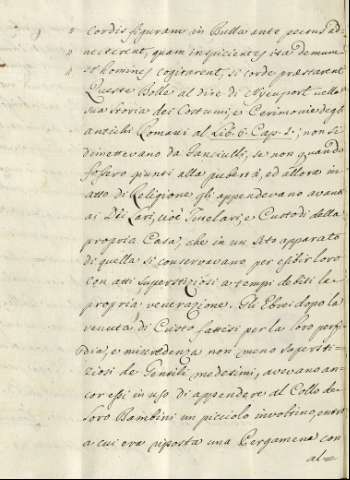 " cordis figuram in Bulla ante pectus ad-
" necterent, quam inspicientes ita demum
" se homines cogitarent, si corde præstarent
Queste Bolle al dire di Nieuport nella
sua Storia dei Costumi, e Cerimonie degli
antichi Romani al Lib. 6. Cap. 2., non si
dimettevano da Fanciulli, se non quando
fossero giunti alla pubertà, ed allora in
atto di Religione gli appendevano avanti
ai Dii Lari, cioè Tutelari, e Custodi della
propria Casa, che in un sito apparato
di quella si conservavano per esibir loro
con atti superstiziosi a tempi debiti la
propria venerazione. Gli Ebrei dopo la
venuta di Cristo fattisi per la loro perfi-
dia, e miscredenza non meno superstiz-
ziosi de Gentili medesimi, avevano an-
cor essi in uso di appendere al Collo de
loro Bambini un piccolo involtino, entro
a cui era riposta una Pergamena con
al=